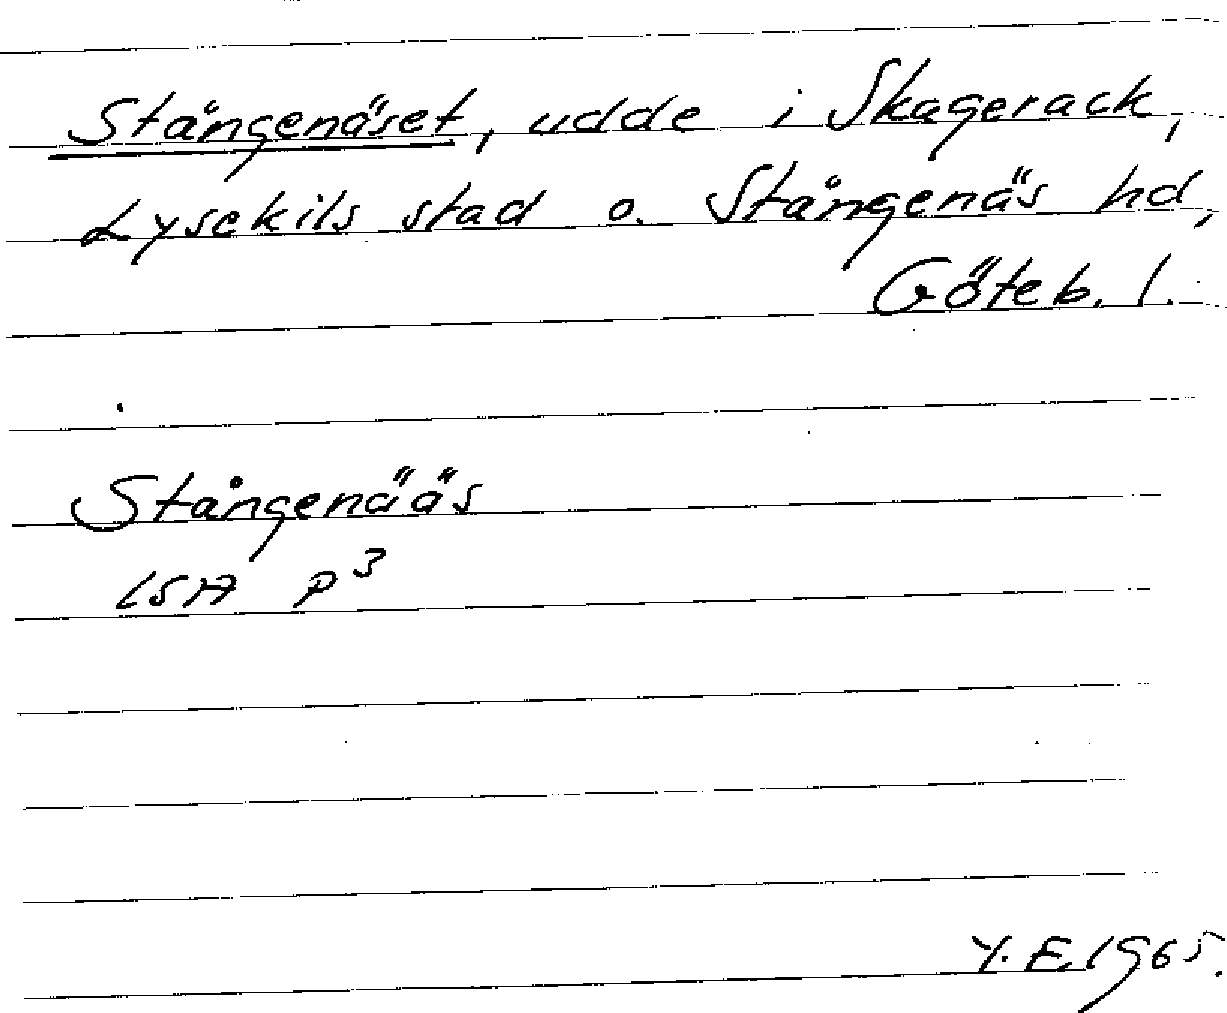 Stångenäset, udde i Skagerack,
Lysekils stad o. Stångenäs hd,
Göteb. l.
Stångenääs
LSA P³
Y. E. 1965.